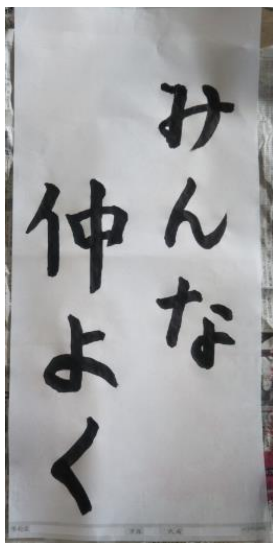 みんな
仲よく